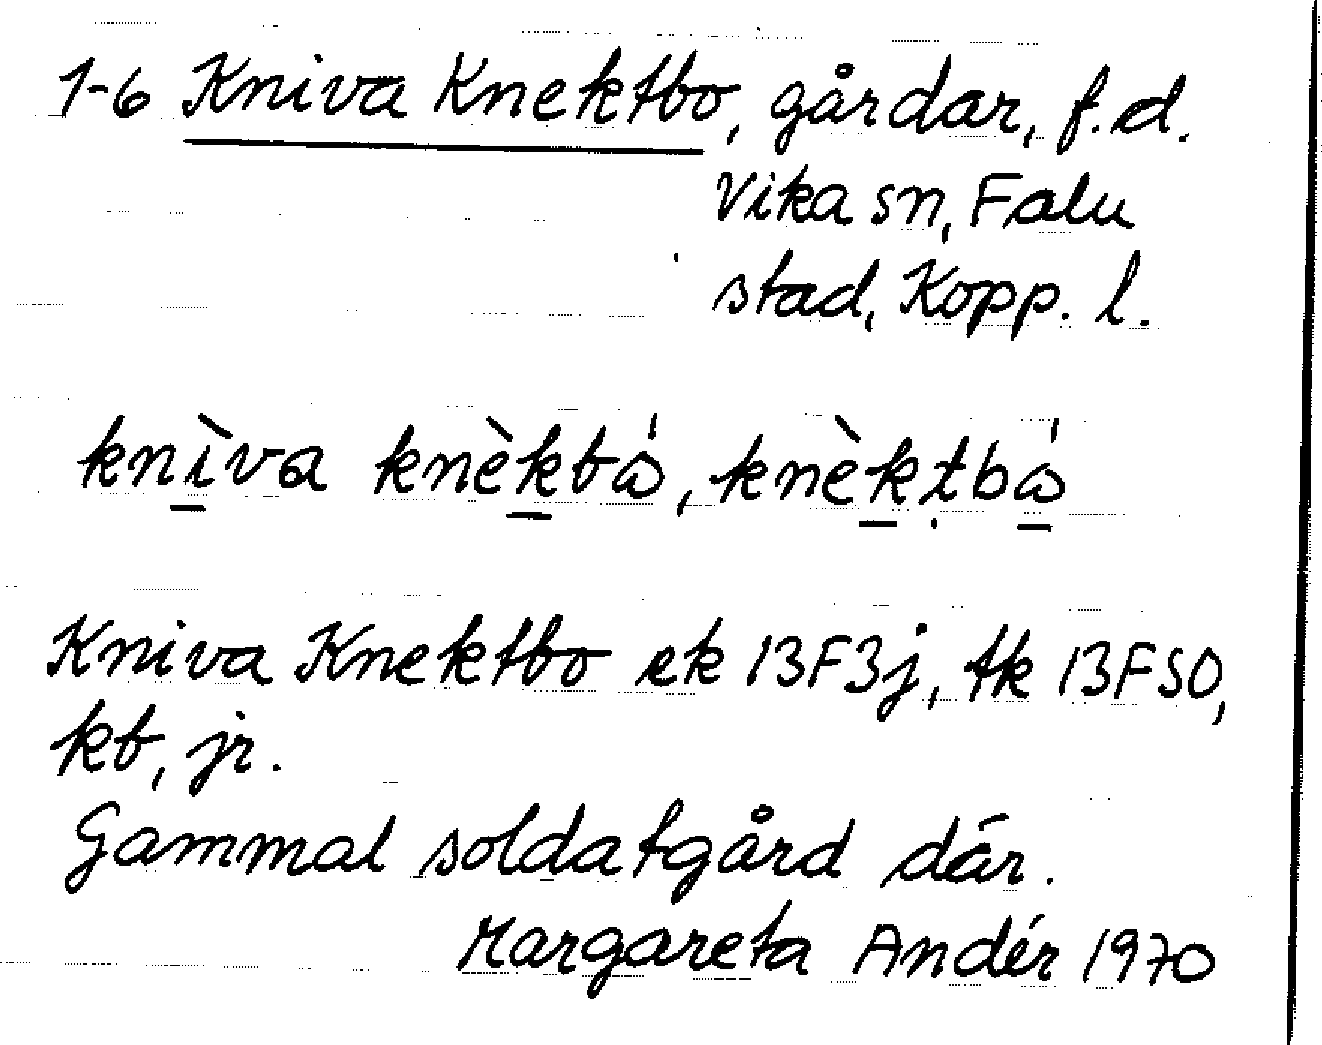 1-6 Kniva Knektbo, gårdar, f.d.
Vika sn, Falu
stad, Kopp. l.
knìva knèkbǻ, knèktbǻ
Kniva Knektbo ek 13F3j, tk 13FSO,
kb, jr.
Gammal soldatgård där.
Margareta Andér 1970